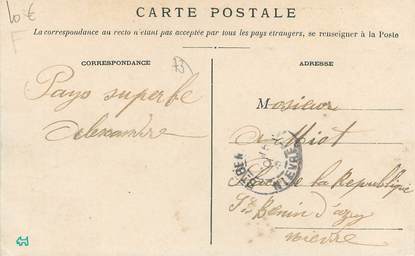 10 €
F
CARTE POSTALE
La correspondance au recto n'étant pas acceptée par tous les pays étrangers, se renseigner à la Poste
CORRESPONDANCE
ADRESSE
Pays superbe
Alexandre
Monsieur
Miot
de la République
St Benin d'azy
nievre
NIEVRE